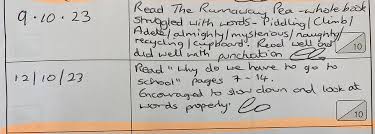 9.10.23
Read The Runaway Pea - whole book
struggled with words - Piddling/Climb/
Adele/almighty/mysterious/naughty/
recycling/cupboard. Read well and
did well with punchation
10
12/10/23
Read "why do we have to go to
school" pages 7-14.
Encouraged to slow down and look at
words properly.
10